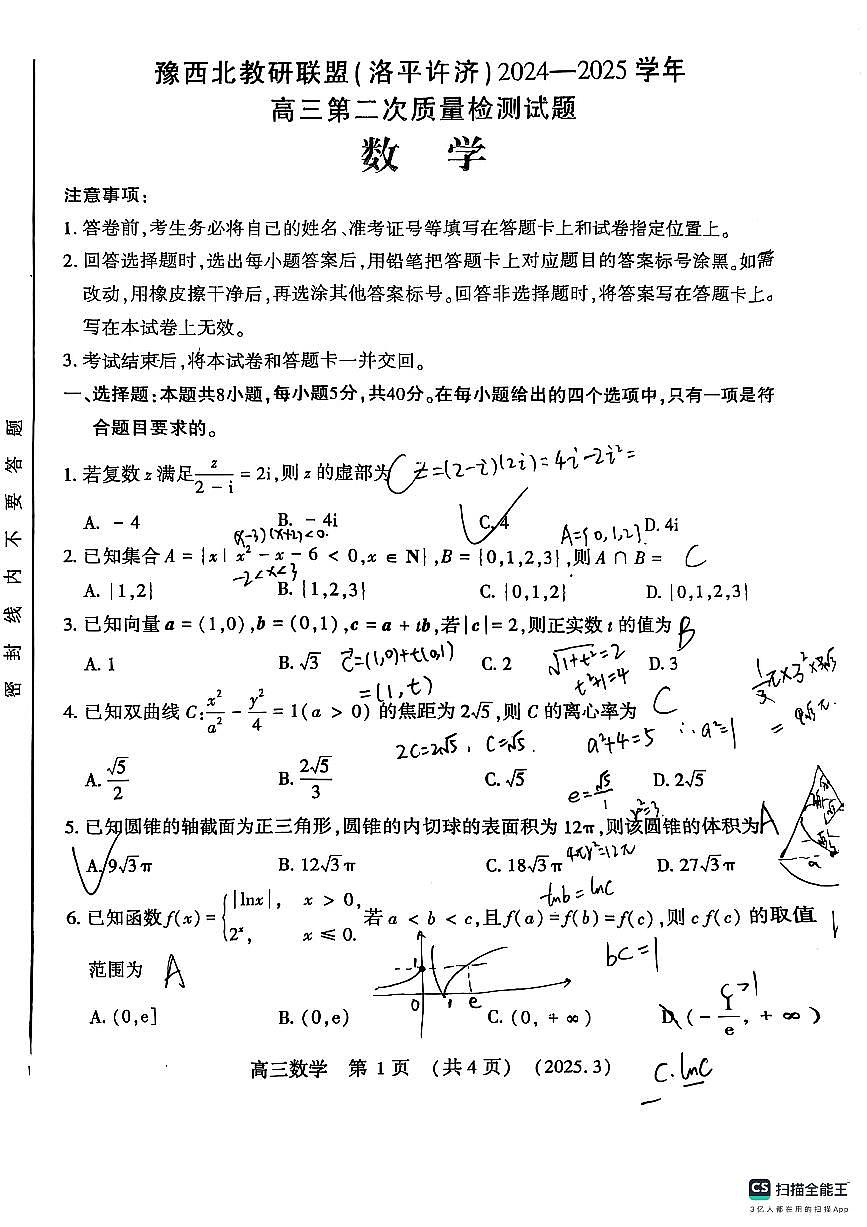 豫西北教研联盟(洛平许济)2024—2025学年
高三第二次质量检测试题
数 学
注意事项:
1. 答卷前,考生务必将自己的姓名、准考证号等填写在答题卡上和试卷指定位置上。
2. 回答选择题时,选出每小题答案后,用铅笔把答题卡上对应题目的答案标号涂黑。如需
改动,用橡皮擦干净后,再选涂其他答案标号。回答非选择题时,将答案写在答题卡上。
写在本试卷上无效。
3. 考试结束后,将本试卷和答题卡一并交回。
一、选择题:本题共8小题,每小题5分,共40分。在每小题给出的四个选项中,只有一项是符
合题目要求的。
密 封 线 内 不 要 答 题
1. 若复数 z 满足 z/(2-i) = 2i,则 z 的虚部为 C z=(2-i)(2i)=4i-2i²=
A. -4 B. -4i C. 4 D. 4i
(x-3)(x+2)<0. A={0,1,2}
2. 已知集合 A = {x | x² - x - 6 < 0,x ∈ N},B = {0,1,2,3},则 A ∩ B = C
-2<x<3
A. {1,2} B. {1,2,3} C. {0,1,2} D. {0,1,2,3}
3. 已知向量 a = (1,0),b = (0,1),c = a + tb,若|c|= 2,则正实数 t 的值为 B
A. 1 B. √3 C. 2 D. 3
c=(1,0)+t(0,1) √1+t²=2
=(1,t) t²+1=4
4. 已知双曲线 C: x²/a² - y²/4 = 1(a > 0) 的焦距为 2√5,则 C 的离心率为 C
2C=2√5, C=√5. a²+4=5 ∴a²=1
A. √5/2 B. 2√5/3 C. √5 D. 2√5
e=√5/1
1/3π×3²×3√3
=9√3π.
5. 已知圆锥的轴截面为正三角形,圆锥的内切球的表面积为 12π,则该圆锥的体积为 A
r²=3
4πr²=12π
A. 9√3π B. 12√3π C. 18√3π D. 27√3π
6. 已知函数 f(x) = {|lnx|, x > 0, 2ˣ, x ≤ 0. 若 a < b < c,且 f(a) = f(b) = f(c),则 c f(c) 的取值
范围为 A
-lnb=lnC
bc=1
1 0 1 e
A. (0,e] B. (0,e) C. (0, + ∞) D. (- 1/e, + ∞)
C>1
C·lnC
高三数学 第 1 页 (共 4 页) (2025.3)
CS 扫描全能王
3亿人都在用的扫描App